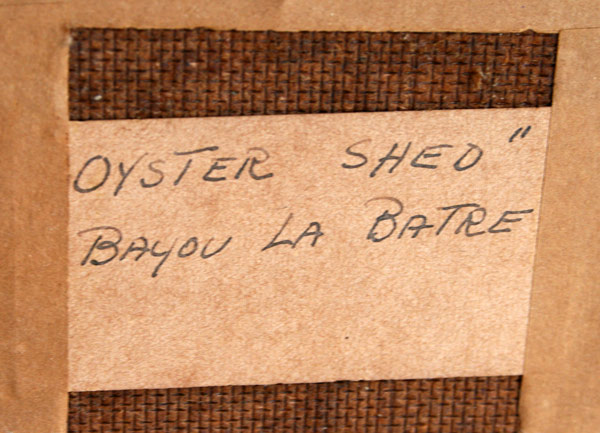 OYSTER SHED"
BAYOU LA BATRE